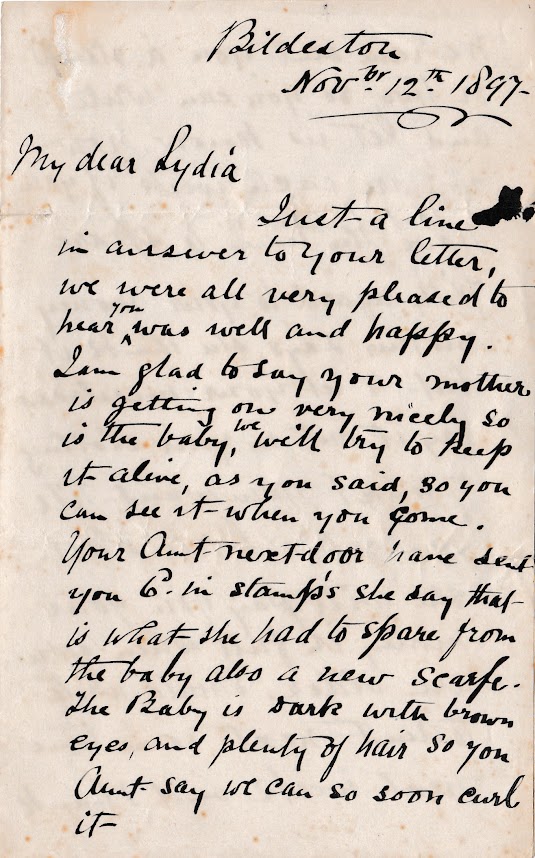 Bildeston
Novbr 12th 1897-
My dear Lydia
Just a line
in answer to your letter,
we were all very pleased to
hear you was well and happy.
I am glad to say your mother
is getting on very nicely so
is the baby, we we'll try to keep
it alive, as you said, so you
can see it when you come.
Your Aunt nextdoor have sent
you 6d. in stamps she say that
is what she had to spare from
the baby also a new scarfe.
The Baby is dark with brown
eyes, and plenty of hair so you
Aunt say we can so soon curl
it-